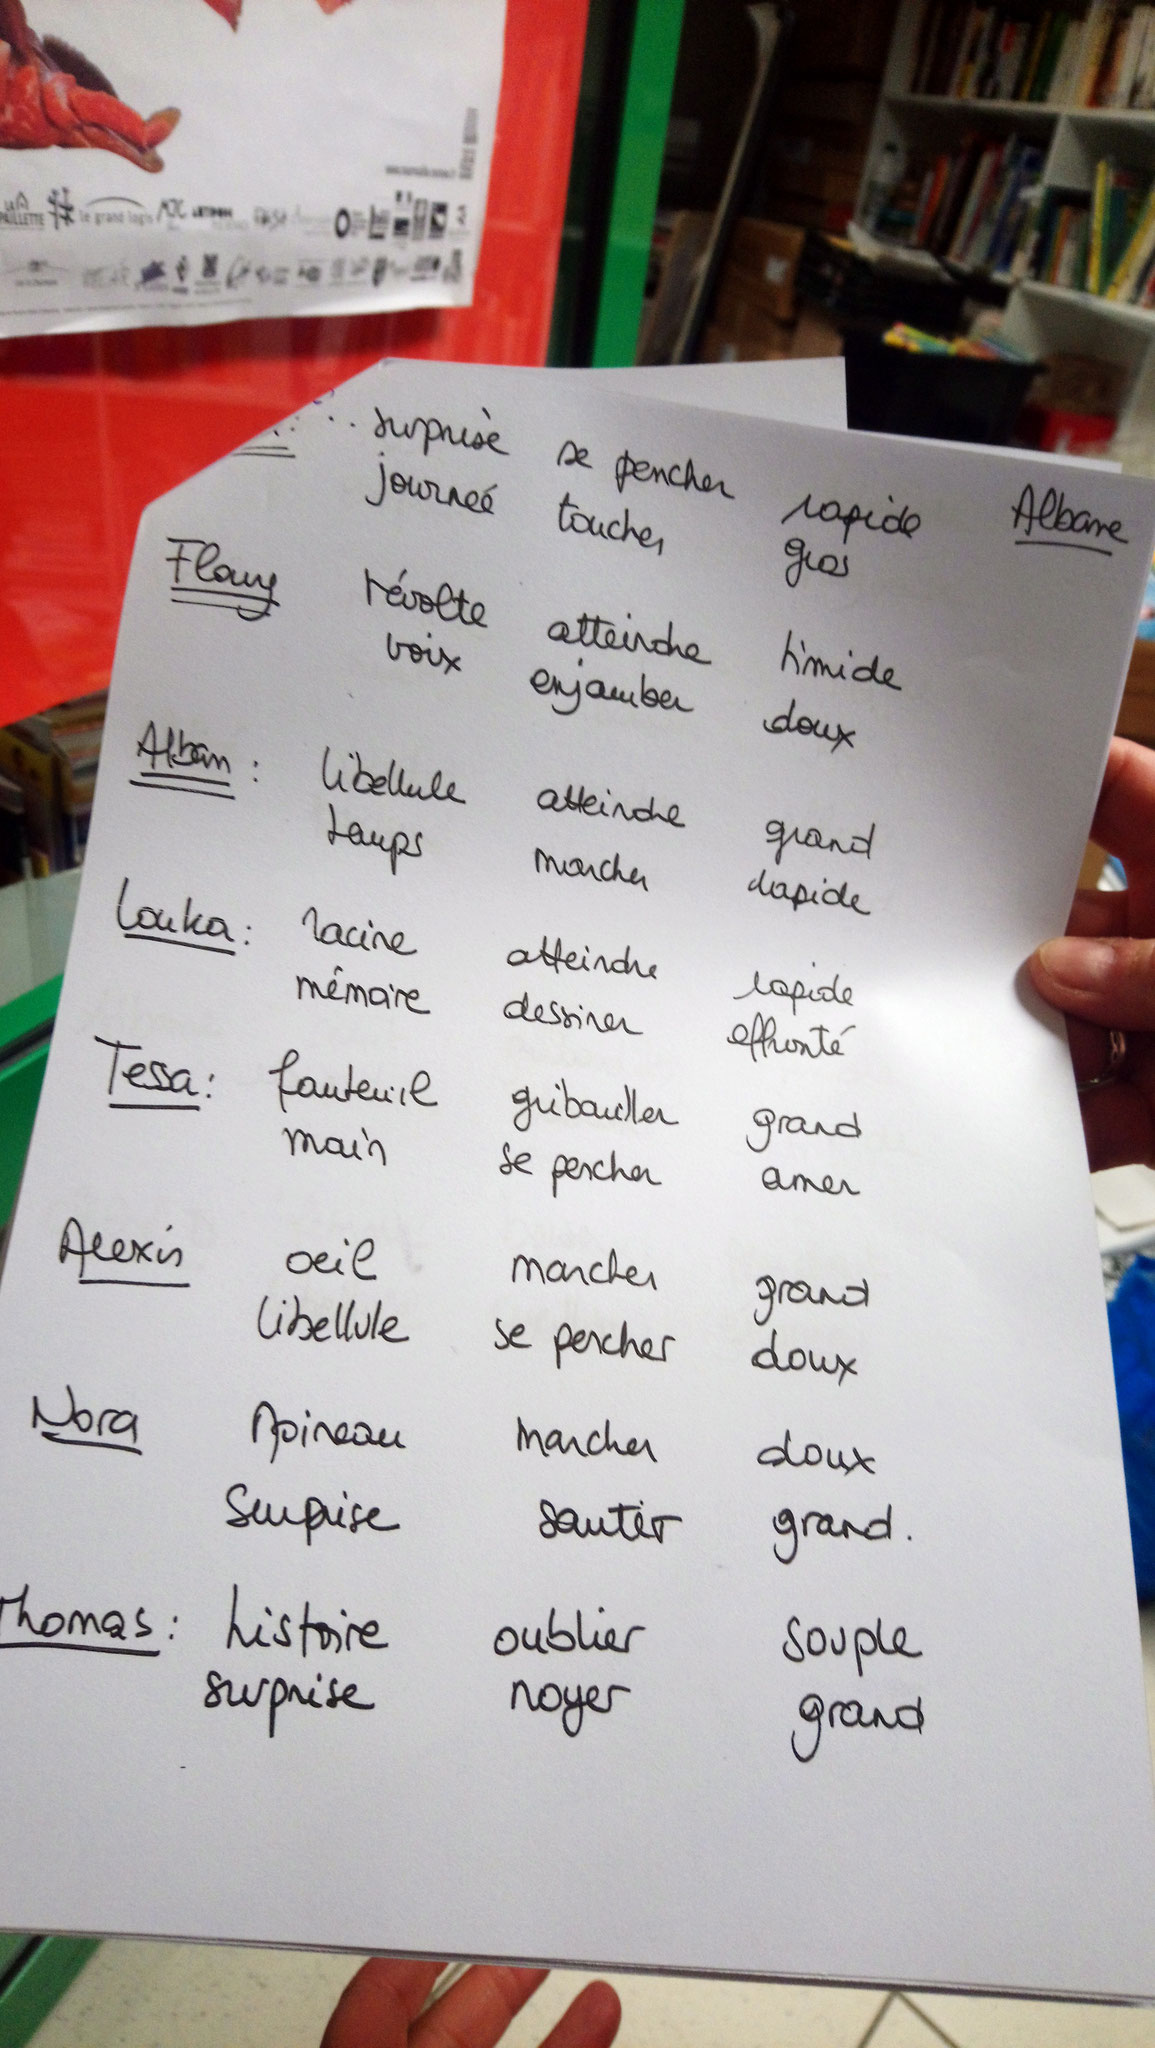 LA PAILLETTE le grand logis MJC
surprise se pencher rapide Albane
journeé toucher gros
Flavy révolte atteindre timide
voix enjamber doux
Alban : libellule atteindre grand
temps marcher rapide
Louka : racine atteindre rapide
mémoire dessiner effronté
Tessa : fauteuil gribouiller grand
main se percher amer
Alexis oeil marcher grand
libellule se percher doux
Nora marcher doux
Surprise sauter grand.
Thomas : histoire oublier souple
surprise noyer grand